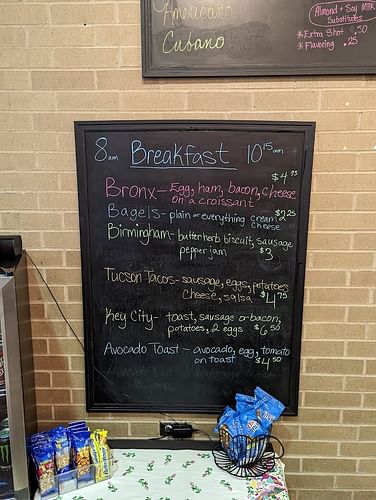 Americano
Cubano
Almond + Soy Milk
Substitutes
* Extra Shot .50
* Flavoring .25
8am Breakfast 10 15am
$4.75
Bronx - Egg, ham, bacon, cheese
on a croissant
Bagels - plain or everything cream $2.25
cheese
Birmingham - butterherb biscuit, sausage
pepper jam $3
Tucson Tacos - sausage, eggs, potatoes
cheese, salsa $4.75
Key City - toast, sausage or bacon,
potatoes, 2 eggs $6.50
Avocado Toast - avocado, egg, tomato
on toast $4.50